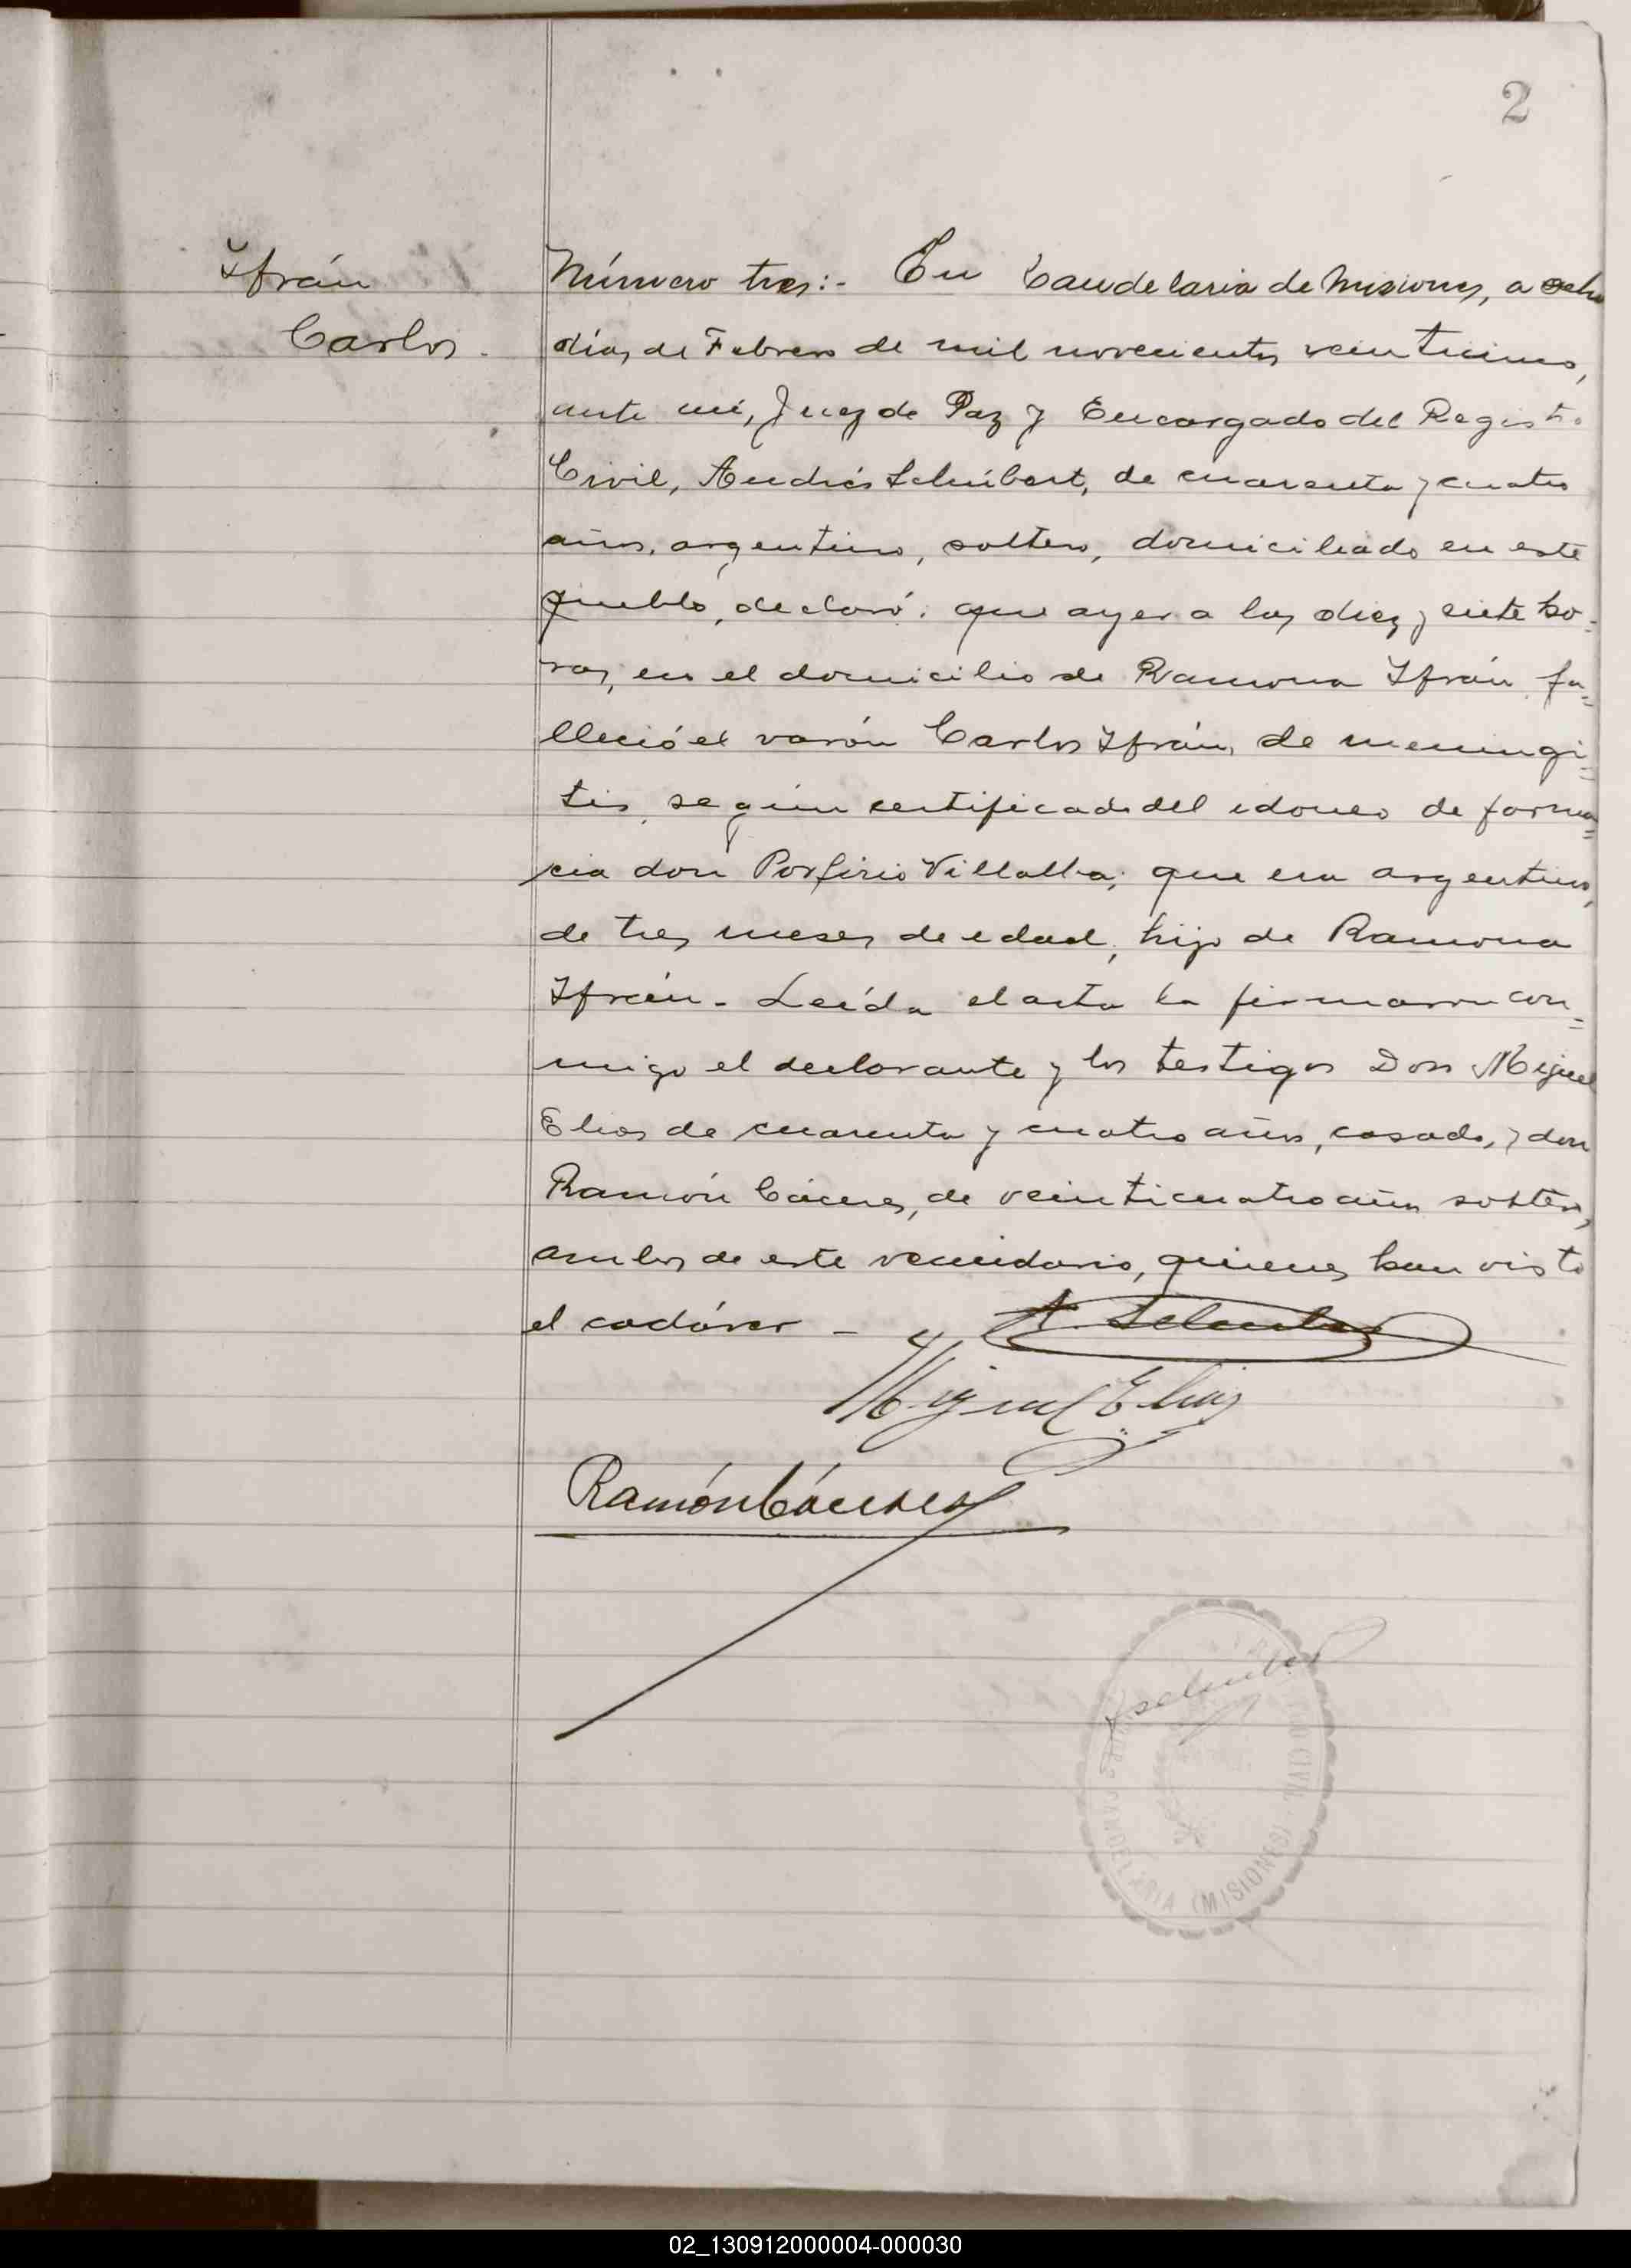 2
Ifrán
Carlos.
Número tres:- En Candelaria de Misiones, a ocho
días de Febrero de mil novecientos veinticinco,
ante mí, Juez de Paz y Encargado del Registro
Civil, Andrés Schubert, de cuarenta y cuatro
años, argentino, soltero, domiciliado en este
pueblo, declaró: que ayer a las diez y siete ho=
ras, en el domicilio de Ramona Ifrán fa=
lleció el varón Carlos Ifrán, de meningi=
tis, según certificado del idoneo de farma=
cia don Porfirio Villalba; que era argentino,
de tres meses de edad, hijo de Ramona
Ifrán. Leída el acta la firmaron con=
migo el declarante y los testigos Don Miguel
Elias de cuarenta y cuatro años, casado, y don
Ramón Cáceres, de veinticuatro años soltero,
ambos de este vecindario, quienes han visto
el cadáver -
Miguel Elias
Ramón Cáceres
CIVIL
CANDELARIA (MISIONES)
02_130912000004-000030